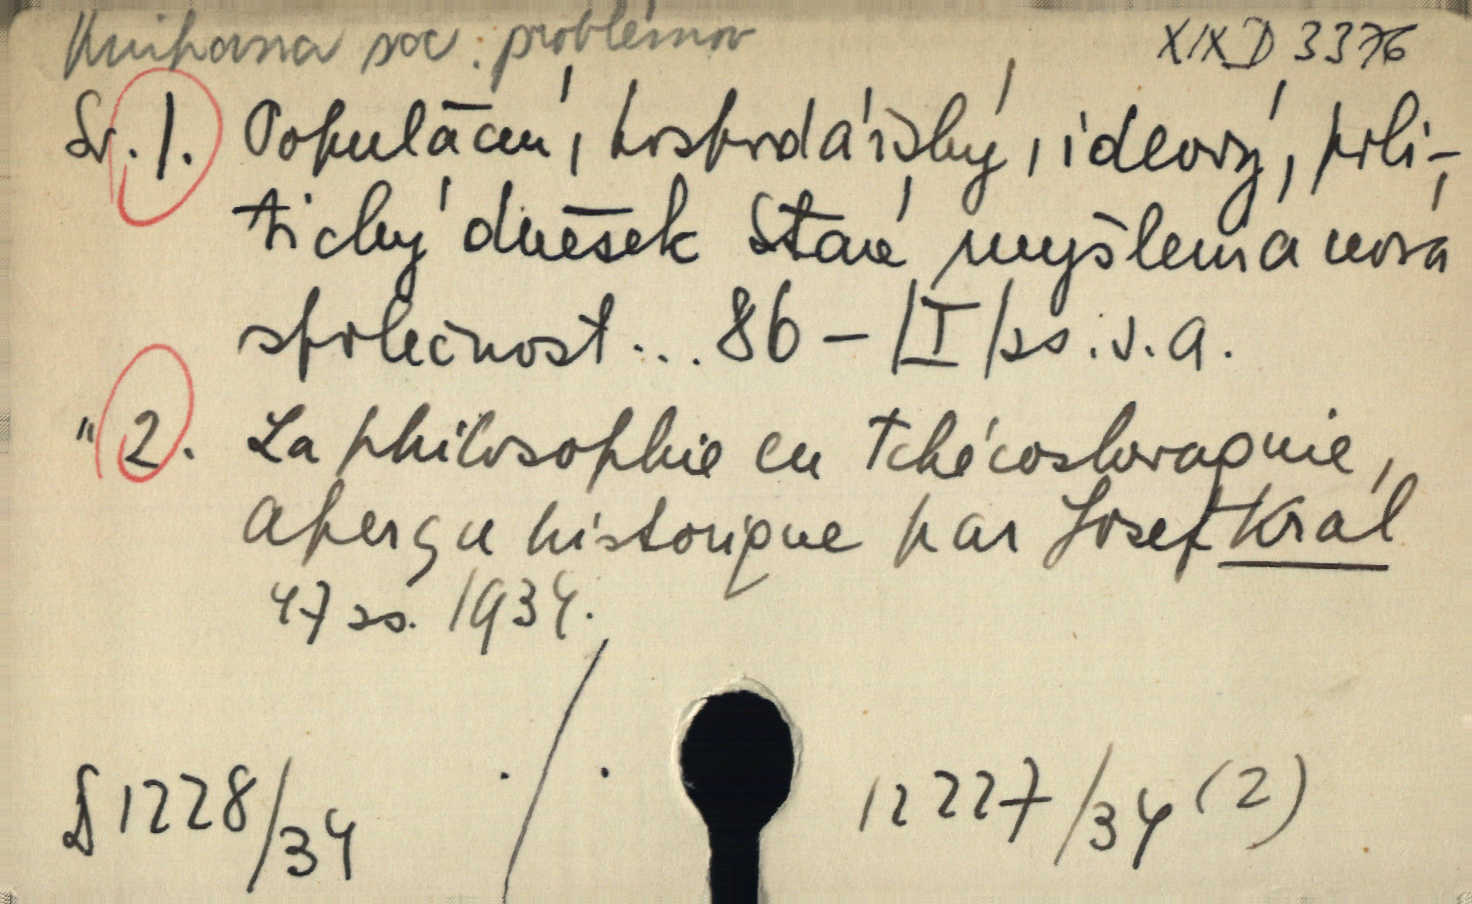 Knihovna soc. problémov XIX D 3376
Sv. 1. Populační, hospodářský, ideový, poli-
tický dnešek Staré myšlení a nová
společnost... 86 - |I| ss. s. a.
" 2. La philosophie en Tchécoslovaquie,
aperçu historique par Josef Král
47 ss. 1934.
§ 1228/34 ./. 12227/34 (2)